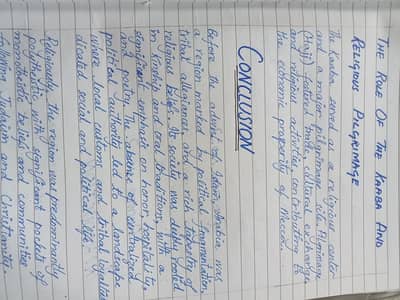 THE ROLE OF THE KAABA AND
RELIGIOUS PILGRIMAGE
The Kaaba served as a religious center
and a major pilgrimage site. Pilgrimage
(Hajj) fostered trade, cultural exchange,
and religious activities, contributing to
the economic prosperity of Mecca.
CONCLUSION
Before the advent of Islam, Arabia was
a region marked by political fragmentation,
tribal allegiances, and a rich tapestry of
religious beliefs. Its society was deeply rooted
in kinship and oral traditions, with a
significant emphasis on honor, hospitality,
and poetry. The absence of centralized
political authority led to a landscape
where local customs and tribal loyalties
dictated social and political life.
Religiously, the region was predominantly
polytheistic, with significant pockets of
monotheistic beliefs and communities
following Judaism and Christianity.